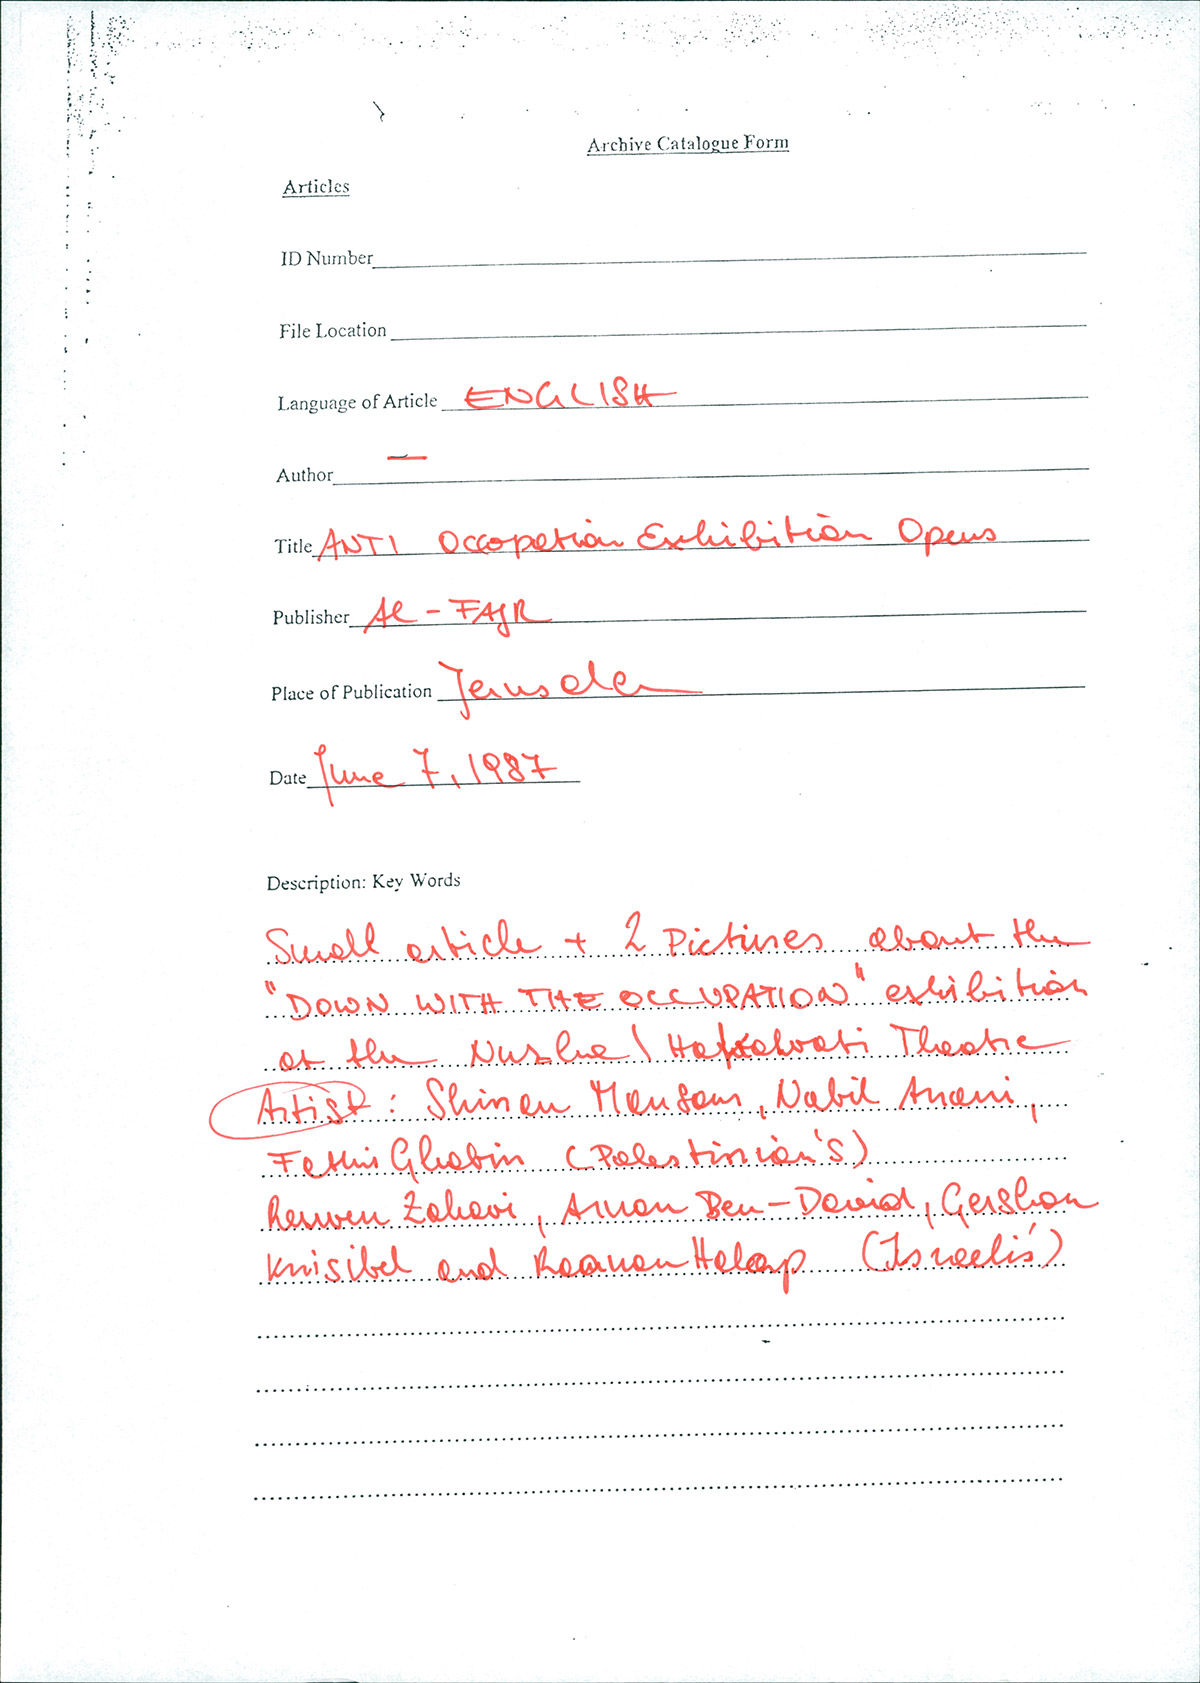 Archive Catalogue Form
Articles
ID Number
File Location
Language of Article ENGLISH
Author —
Title ANTI Occopation Exhibition Opens
Publisher Al - FAJR
Place of Publication Jerusalem
Date June 7, 1987
Description: Key Words
Small article + 2 Pictures about the
"DOWN WITH THE OCCUPATION" exhibition
at the Nuzha / Theatre
Artist : Sliman Mansour, Nabil Anani,
Fethi Ghabin (Palestinian's)
Reuven Zahavi, Arnon Ben-David, Gershon
Knisibel and Raanan Harlap (Israeli's)